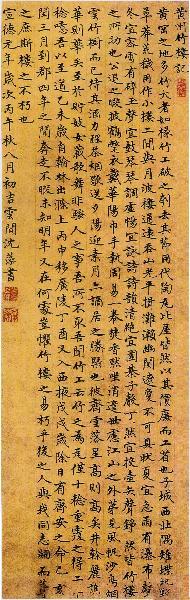 黃州竹樓記
黃岡之地多竹大者如椽竹工破之刳去其節用代陶瓦比屋皆然以其價廉而工省也子城西北隅雉堞圮毀
蓁莽荒穢因作小樓二間與月波樓通遠吞山光平挹江瀨幽闃遼夐不可具狀夏宜急雨有瀑布聲
冬宜密雪有碎玉聲宜鼓琴琴調虛暢宜詠詩詩韻清絕宜圍棋子聲丁丁然宜投壺矢聲錚錚然皆竹樓
之所助也公退之暇披鶴氅衣戴華陽巾手執周易一卷焚香默坐消遣世慮江山之外第見風帆沙鳥煙
雲竹樹而已待其酒力醒茶煙歇送夕陽迎素月亦謫居之勝槩也彼齊雲落星高則高矣井幹麗譙
華則華矣止於貯妓女藏歌舞非騷人之事吾所不取吾聞竹工云竹之為瓦僅十稔若重覆之得二十
稔噫吾以至道乙未歲自翰林出滁上丙申移廣陵丁酉又入西掖戊戌歲除日有齊安之命己亥
閏三月到郡四年之間奔走不暇未知明年又在何處豈懼竹樓之易朽乎後之人與我同志嗣而葺
之庶斯樓之不朽也
宣德元年歲次丙午秋八月初吉雲間沈藻書